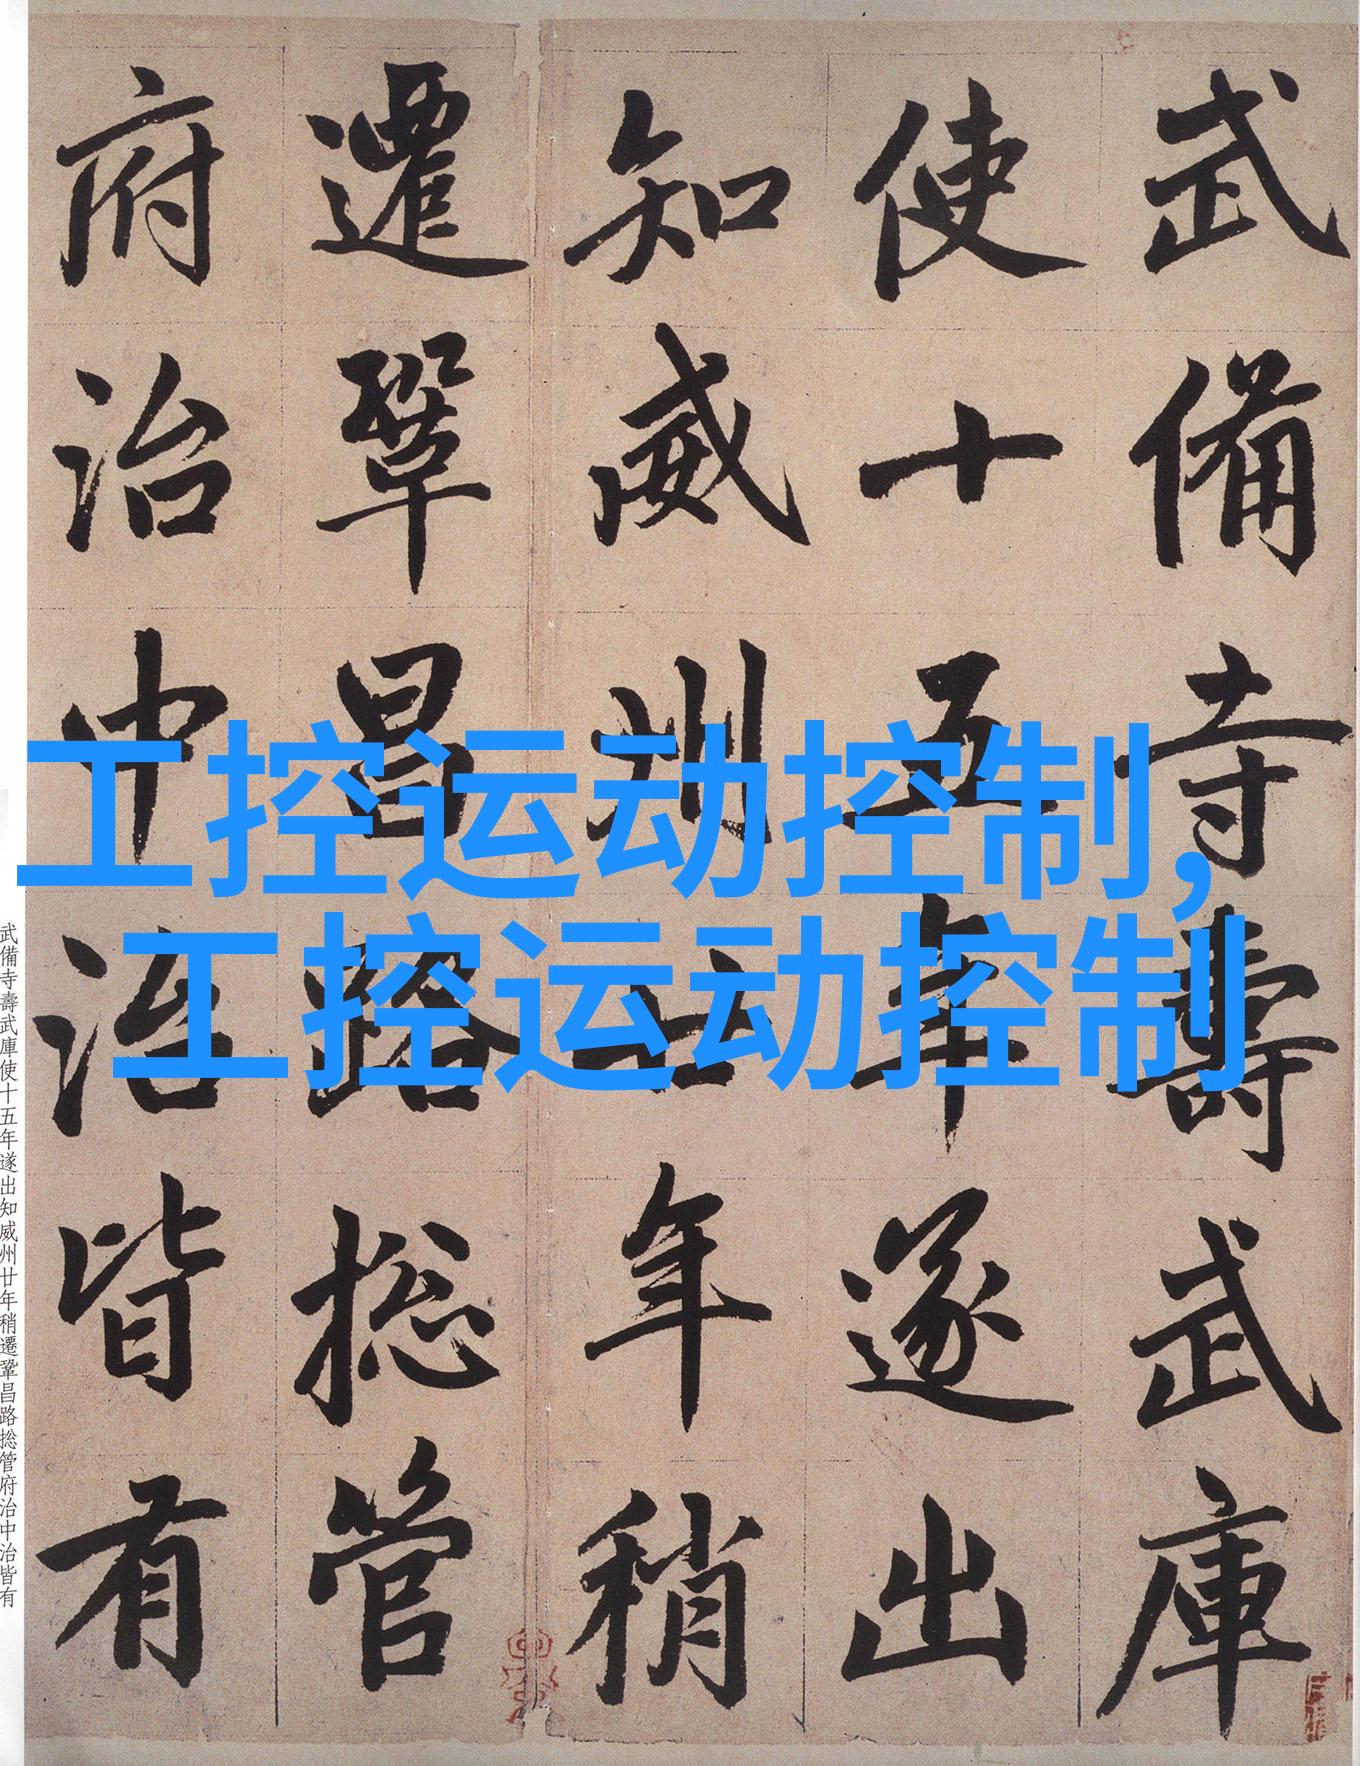 武備寺壽武庫
使十五年遂出
知威州廿年稍
遷鞏昌路摠管
府治中治皆有
工控运动控制,
工控运动控制
武備寺壽武庫使十五年遂出知威州廿年稍遷鞏昌路摠管府治中治皆有